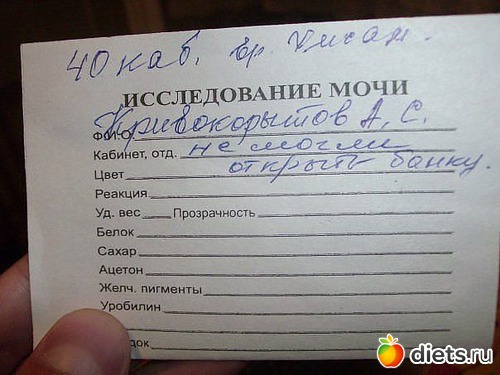 40 каб. вр.
ИССЛЕДОВАНИЕ МОЧИ
Ф.И.О. Кривокорытов А. С.
Кабинет, отд. не могли
Цвет открыть банку.
Реакция
Уд. вес Прозрачность
Белок
Сахар
Ацетон
Желч. пигменты
Уробилин
док
diets.ru